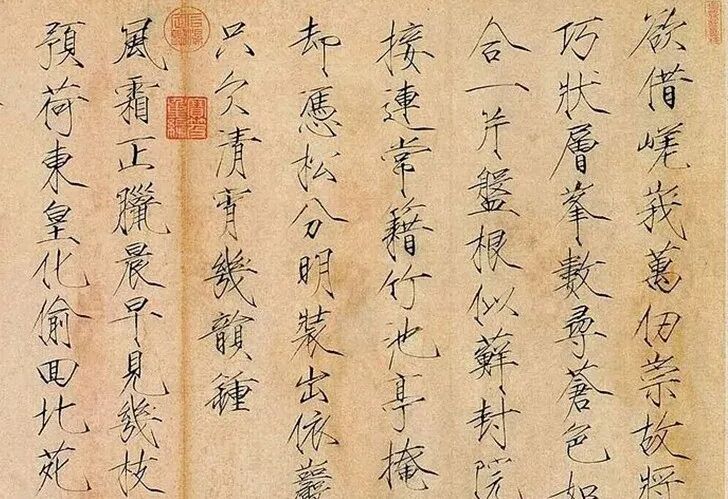 欲借嵯峩萬仞崇故將
巧狀層峯數尋蒼色如
合一片盤根似蘚封院
接連常籍竹池亭掩
却憑松分明裝出依巖
只欠清宵幾韻鍾
風霜正臘晨早見幾枝
預荷東皇化偷回北苑